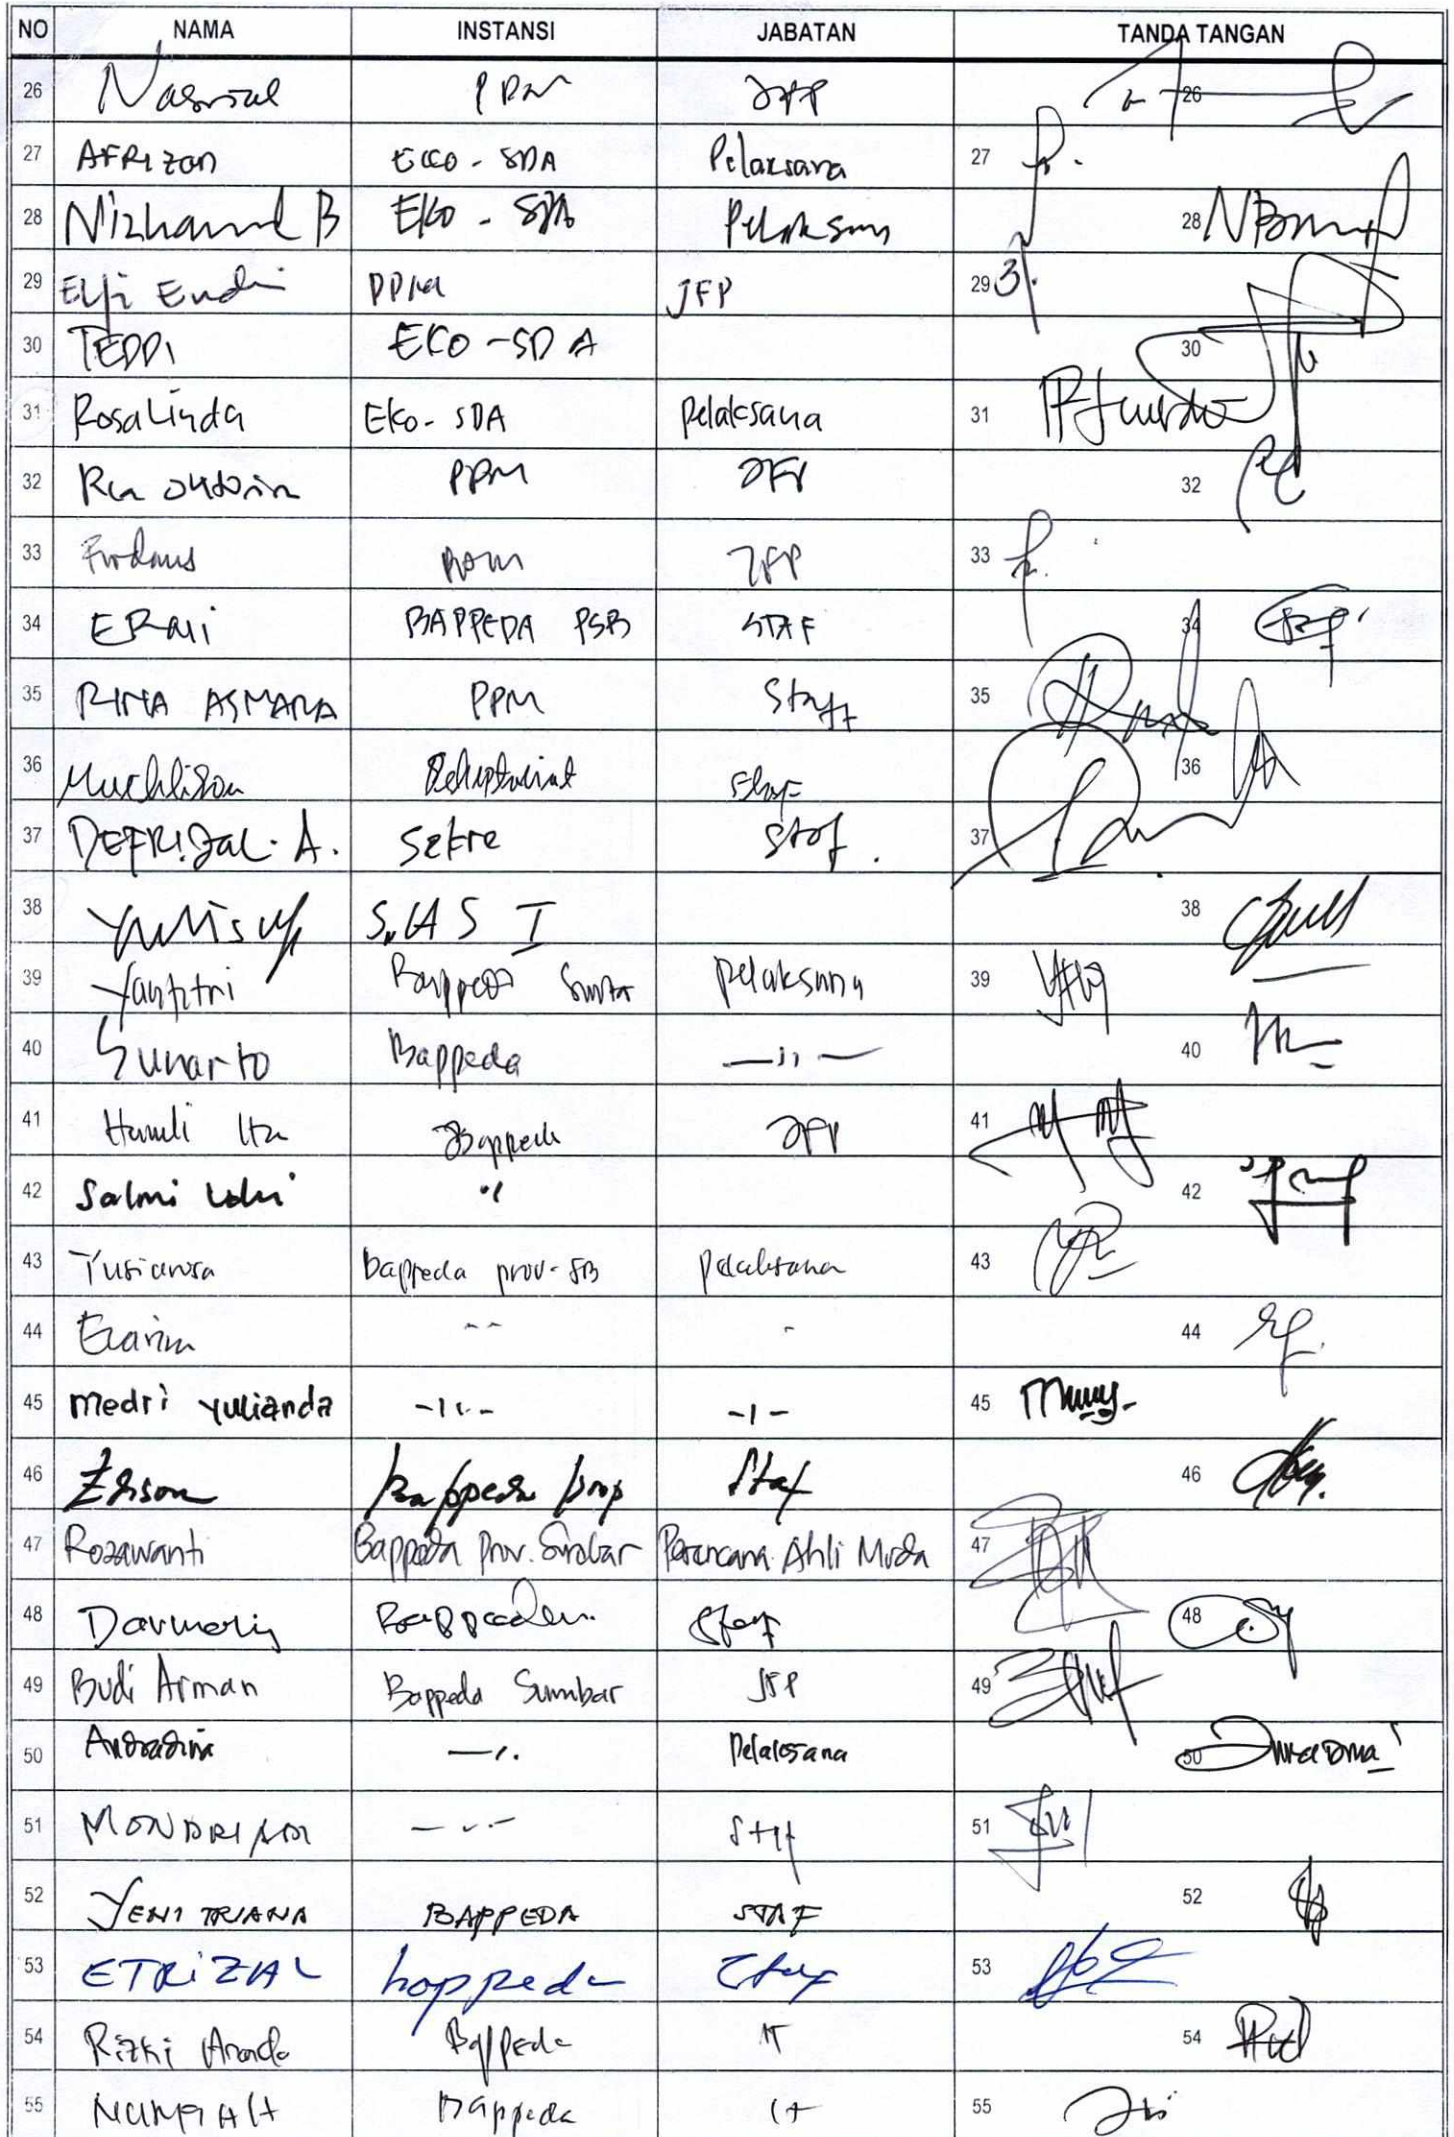 NO NAMA INSTANSI JABATAN TANDA TANGAN
26 Nasrial PPM JFP 26
27 AFRIZON EKO - SDA Pelaksana 27
28 Nizhamul B EKO - SDA Pelaksana 28
29 Elfi Endri PPM JFP 29
30 TEDDI EKO - SDA 30
31 Rosalinda EKo - SDA Pelaksana 31
32 PPM JFP 32
33 Firdaus PPM JFP 33
34 ERMI BAPPEDA PSB STAF 34
35 RINA ASMARA PPM Staff 35
36 Muchlison Sekretariat Staf 36
37 DEFRIZAL. A. Sekre Staf. 37
38 I 38
39 Yanfitri Bappeda Pelaksana 39
40 Sunarto Bappeda —,,— 40
41 Bappeda JFP 41
42 Salmi 42
43 Yusianra Bappeda prov. SB Pelaksana 43
44 44
45 medri yulianda -,,- -,- 45
46 Edison Bappeda prop Staf 46
47 Rozawanti Bappeda Prov. Sumbar Perencana Ahli Muda 47
48 Bappeda Staf 48
49 Budi Arman Bappeda Sumbar JFP 49
50 Pelaksana 50
51 51
52 YENI TRIANA BAPPEDA STAF 52
53 ETRIZAL bappeda Staf 53
54 Rizki Bappeda 54
55 Bappeda 55